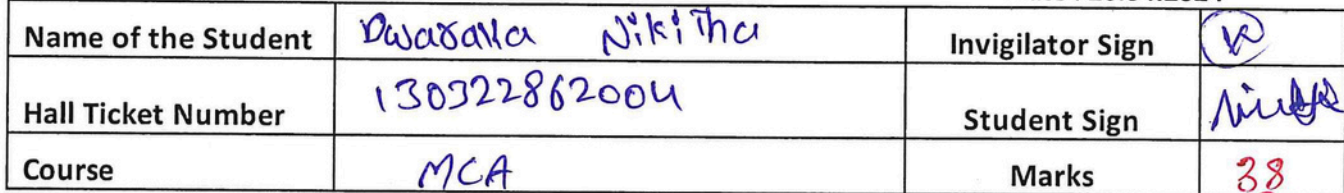 Name of the Student Dwaraka Nikitha Invigilator Sign
Hall Ticket Number 130322862004 Student Sign
Course MCA Marks 38